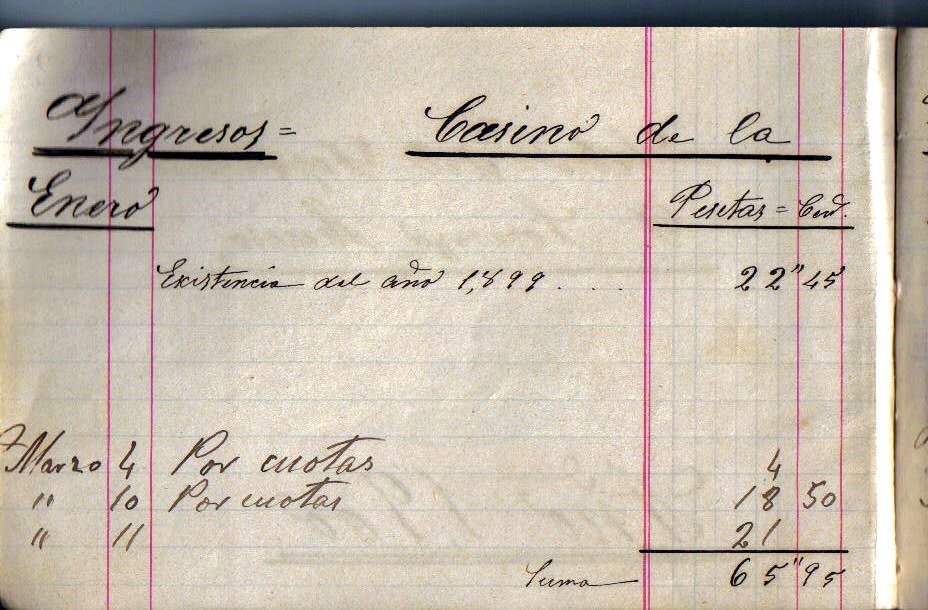 Ingresos = Casino de la
Enero Pesetas = Cen.
Existencia del año 1,899 .... 22" 45
Marzo 4 Por cuotas 4
" 10 Por cuotas 18 50
" 11 21
Suma 65" 95